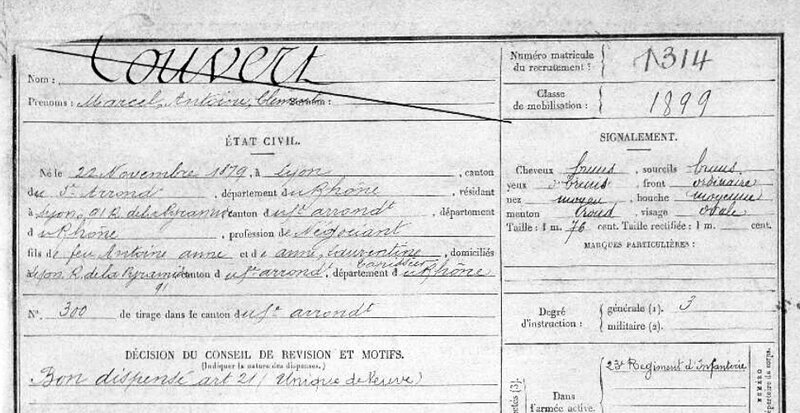 Nom : Couvert
Prénoms : Marcel, Antoine, Clément Surnom :
Numéro matricule
du recrutement : 1314
Classe
de mobilisation : 1899
ÉTAT CIVIL.
Né le 22 Novembre 1879, à Lyon, canton
du Arrond, département du Rhône, résidant
à Lyon, 91 R. de la Pyramide canton du arrondt, département
du Rhône, profession de Négociant
fils de feu Antoine anne et de anne Laurentine, domiciliés
à Lyon, R. de la Pyramide canton du arrondt, département du Rhône
91
N° 300 de tirage dans le canton du arrondt
SIGNALEMENT.
Cheveux bruns, sourcils bruns
yeux bruns, front ordinaire
nez moyen, bouche moyenne
menton rond, visage ovale
Taille : 1 m. 76 cent. Taille rectifiée : 1 m. cent.
MARQUES PARTICULIÈRES :
Degré
d'instruction :
générale (1). 3
militaire (2).
DÉCISION DU CONSEIL DE RÉVISION ET MOTIFS.
(Indiquer la nature des dispenses.)
Bon dispensé art 21 (Unique de veuve)
Dans
l'armée active.
23e Régiment d'Infanterie
NUMÉRO